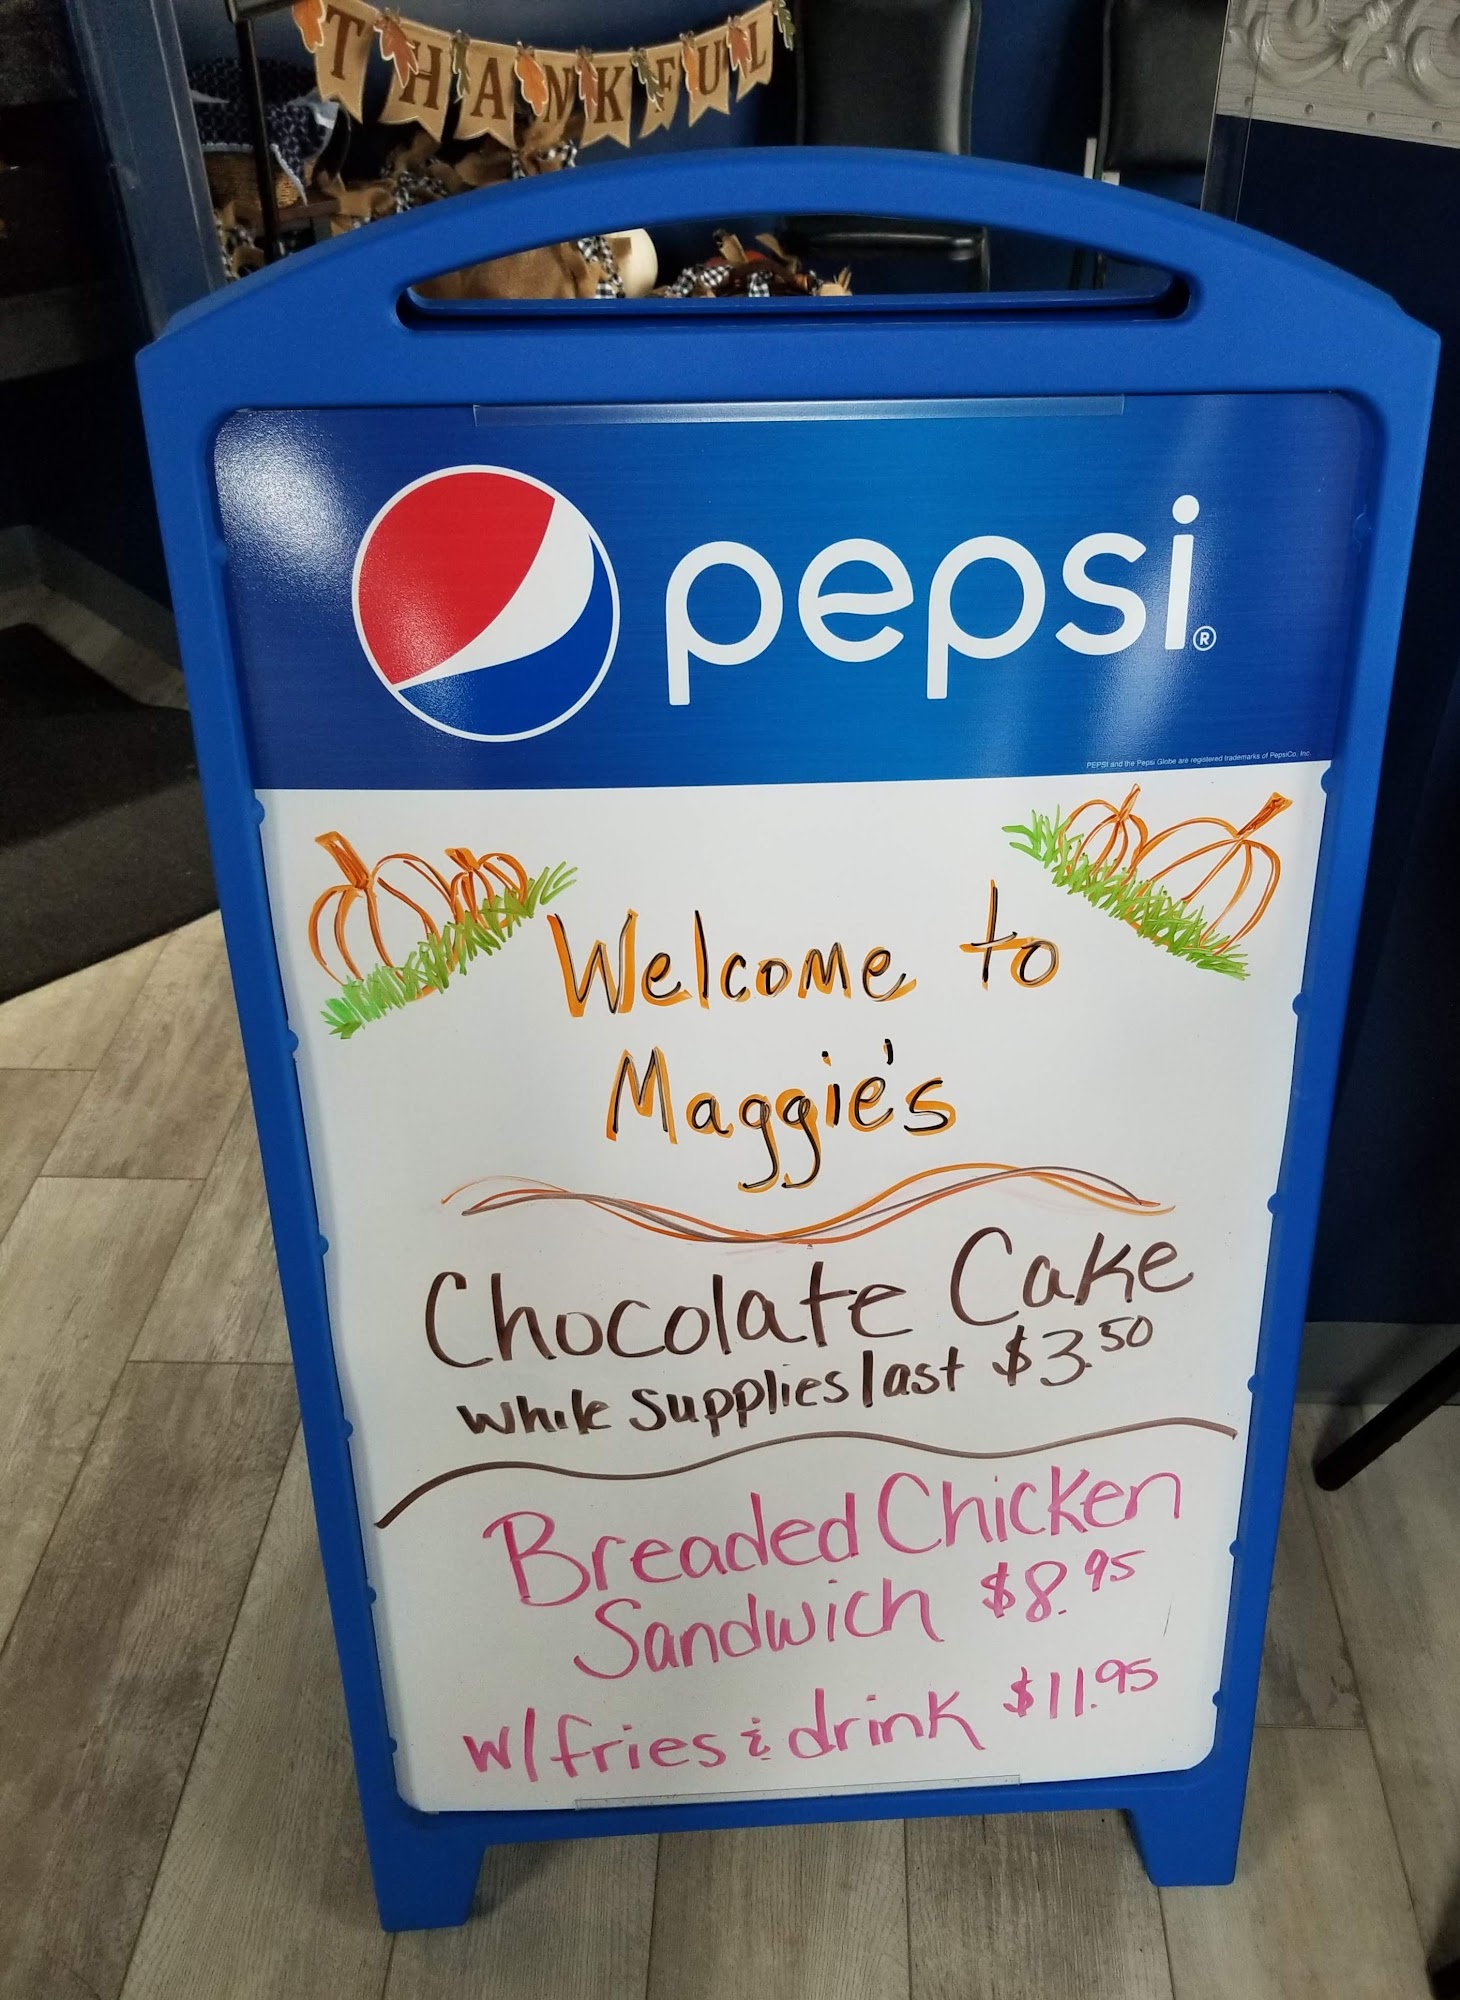 THANKFUL
pepsi®
PEPSI and the Pepsi Globe are registered trademarks of PepsiCo, Inc.
Welcome to
Maggie's
Chocolate Cake
while supplies last $3.50
Breaded Chicken
Sandwich $8.95
w/fries & drink $11.95